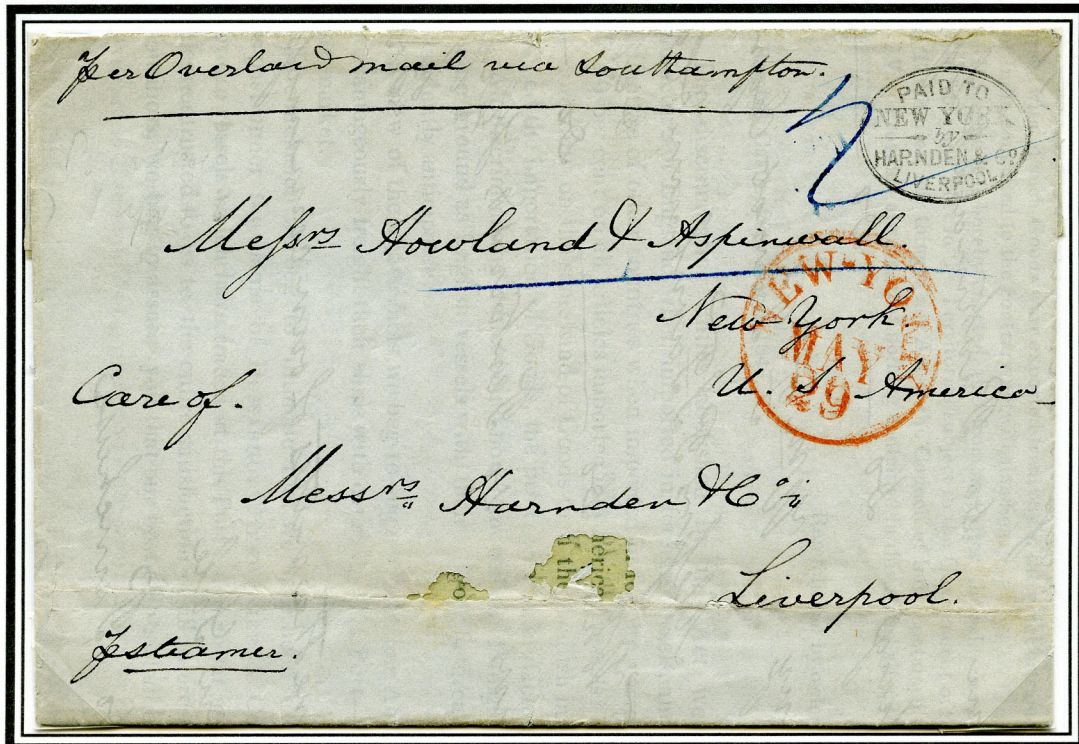 Per Overland mail via Southampton.
2
PAID TO
NEW YORK
by
HARNDEN & Co
LIVERPOOL
Messrs Howland & Aspinwall.
New York.
U. S. America
NEW-YORK
MAY
29
Care of.
Messrs Harnden & Co
Liverpool.
P steamer.